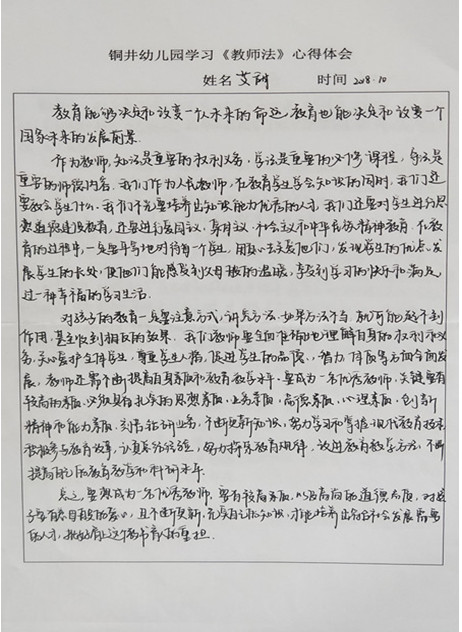 铜井幼儿园学习《教师法》心得体会
姓名 艾 时间 2018.10
教育能够决定和改变一个人未来的命运，教育也能决定和改变一个
国家未来的发展前景。
作为教师，知法是重要的权利义务，学法是重要的必修课程，守法是
重要的师德内容。我们作为人民教师，在教育学生学会知识的同时，我们还
要教会学生什么。我们不光要培养出知识能力优秀的人才，我们还要对学生进行思
想道德建设教育，还要进行爱国主义、集体主义、社会主义和中华民族精神教育。在教
育的过程中，一定要平等地对待每一个学生，用真心去关爱他们，发现学生的优点，发
展学生的长处，使他们能感受到父母般的温暖，享受到学习的快乐和满足，
过一种幸福的学习生活。
对孩子的教育一定要注意方式，讲究方法，如果方法不当，就可能起不到
作用，甚至收到相反的效果。我们教师要全面准确地理解自身的权利和义
务，关心爱护全体学生，尊重学生人格，促进学生的品德、智力、体质等方面全面发
展，教师还需不断提高自身素质和教育教学水平。要成为一名优秀教师，关键要有
较高的素质。必须具有扎实的思想素质、业务素质、品德素质、心理素质、创新
精神和能力素质，刻苦钻研业务，不断更新知识，努力学习和掌握现代教育技术，
积极参与教育改革，认真总结经验，努力探索教育规律，改进教育教学方法，不断
提高自己的教育教学和科研水平。
总之，要想成为一名优秀教师，要有较高素质，以及高尚的道德态度，对孩
子要有慈母般的爱心，且不断更新、充实自己的知识，才能培养出符合社会发展需要
的人才，挑好肩上这个教书育人的重担。